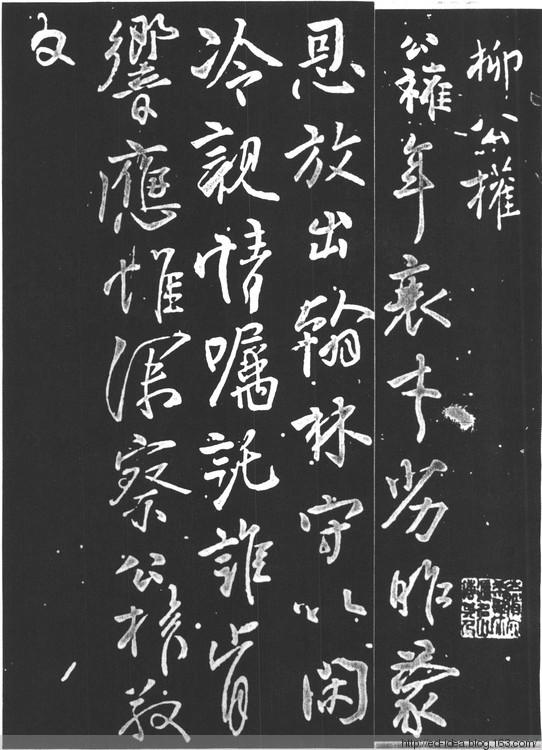 柳公權
公權年衰才劣昨蒙
恩放出翰林守以閑
冷親情囑託誰肯
響應惟深察公權敬
白
http://ed-idea.blog.163.com/